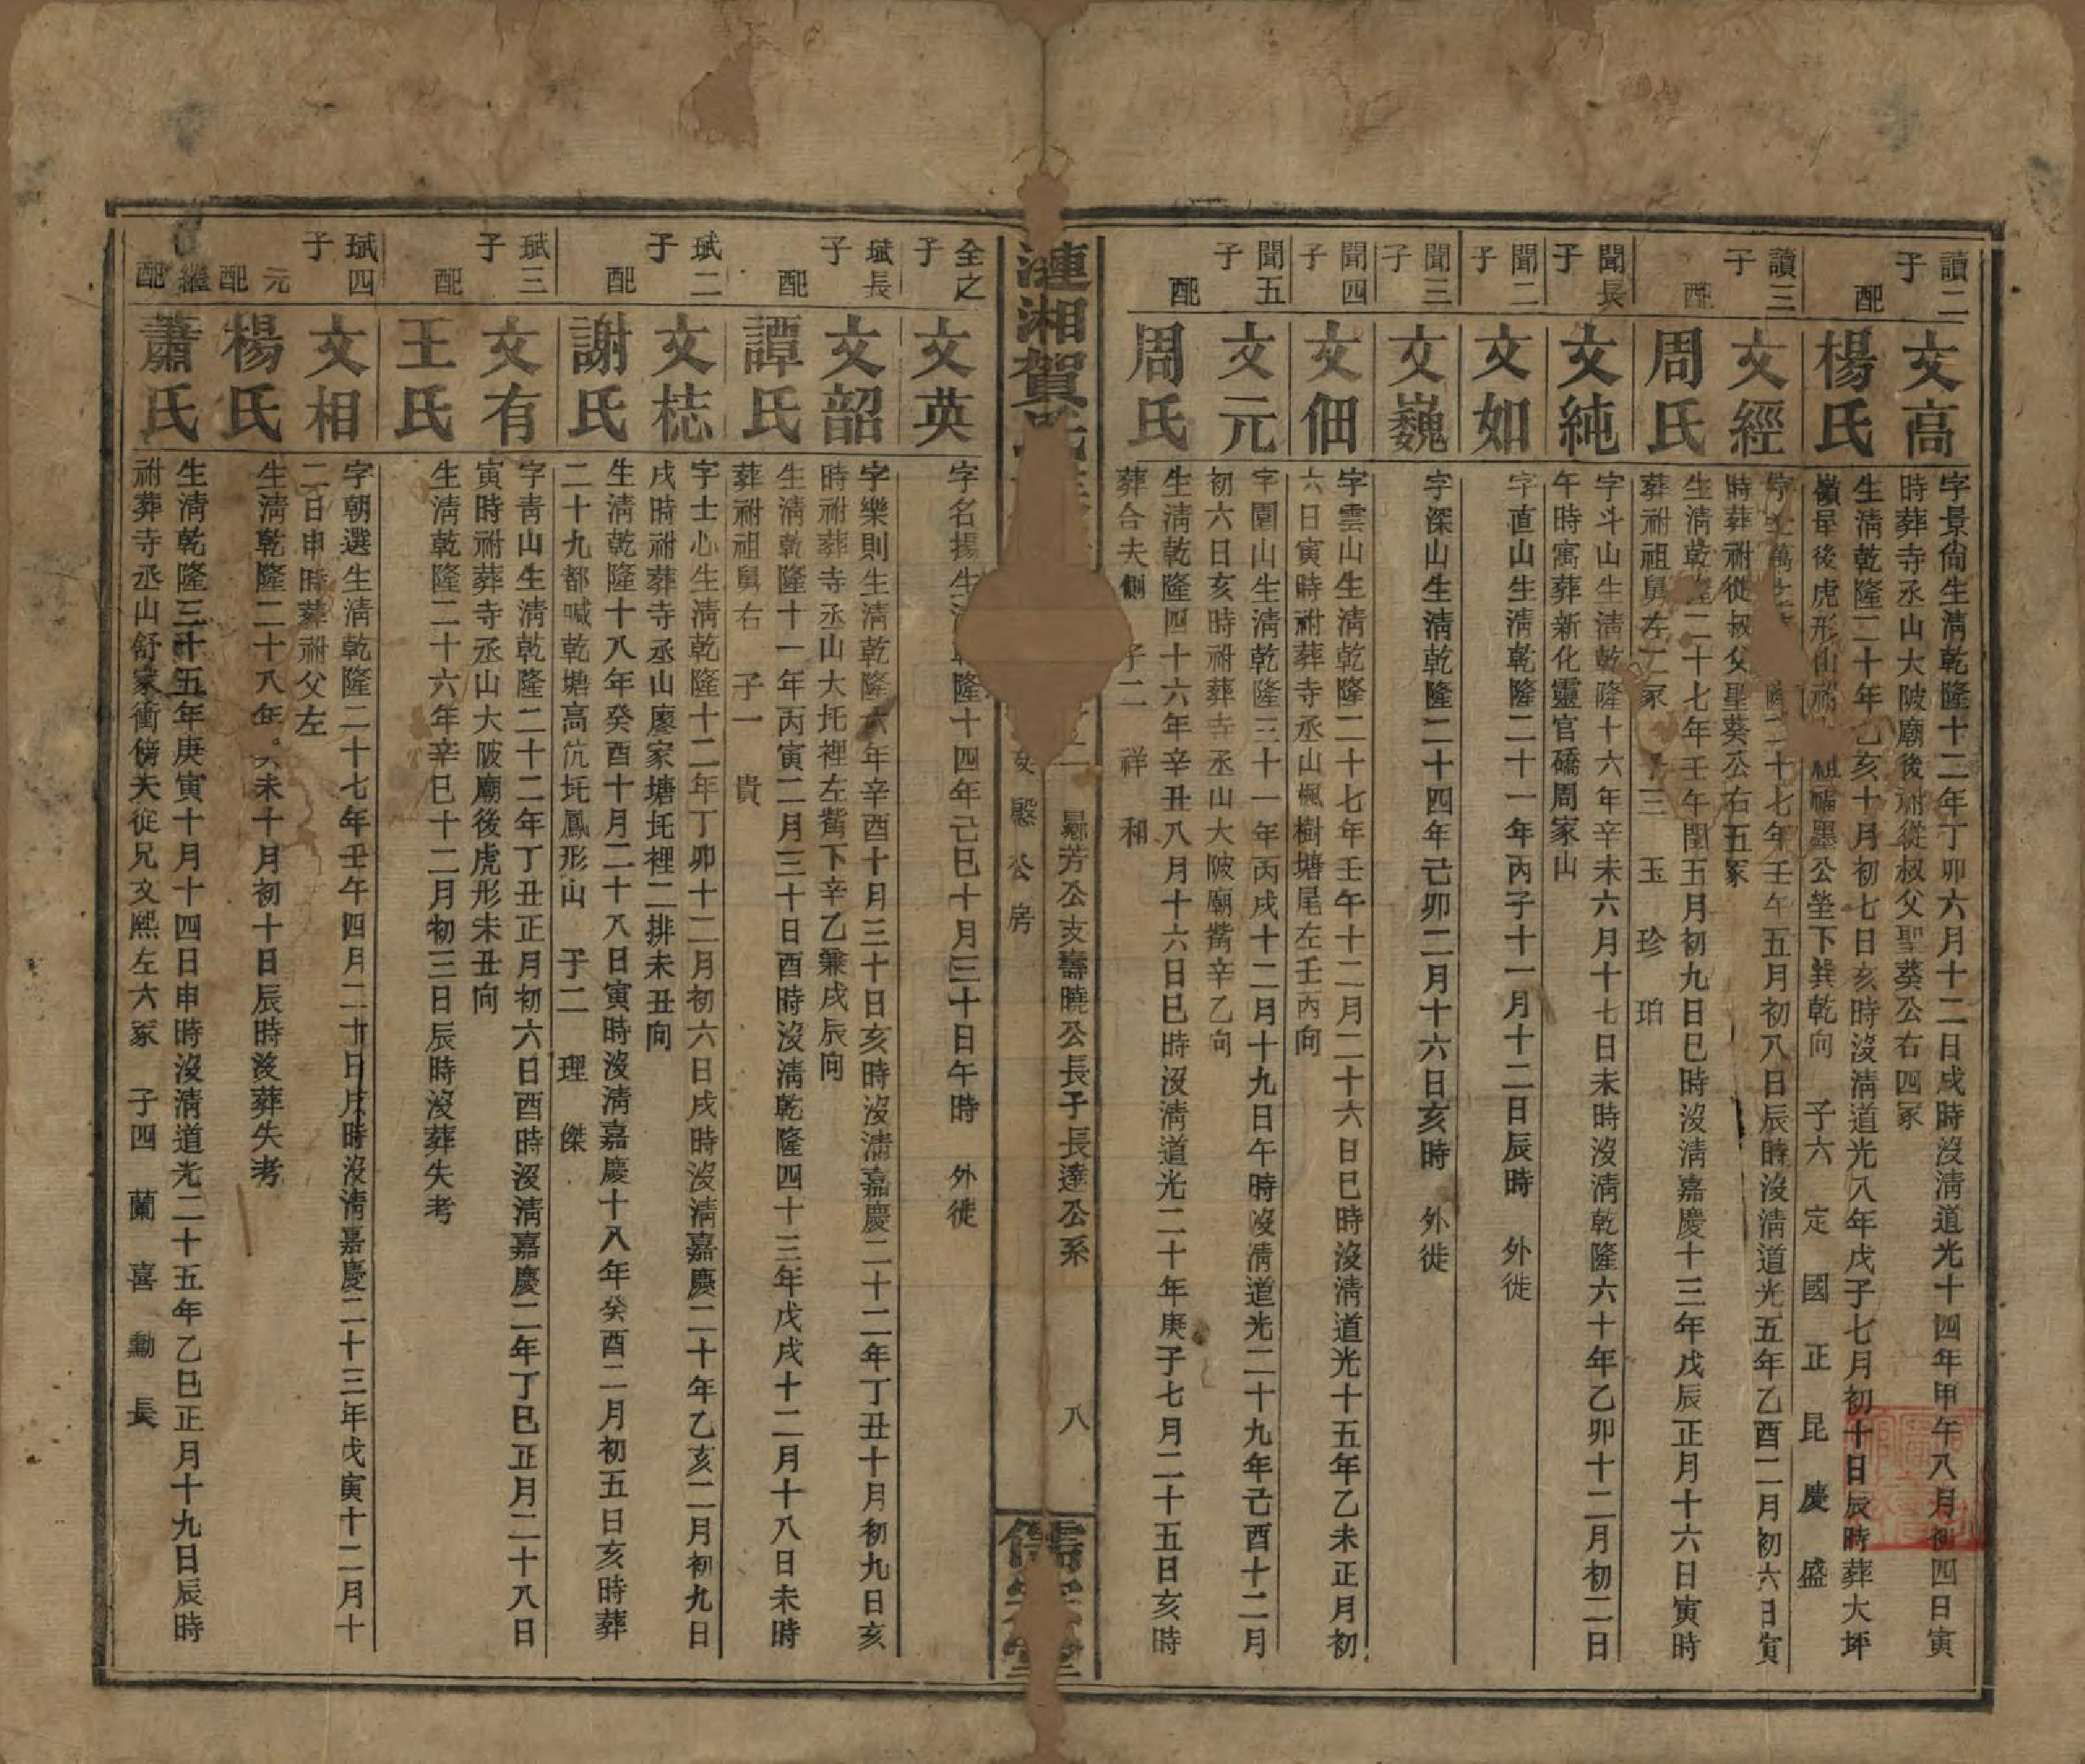 讀二子
文高
字景尙生淸乾隆十二年丁卯六月十二日戌時沒淸道光十四年甲午八月初四日寅
時葬寺丞山大陂廟後祔從叔父聖葵公右四冢
配
楊氏
生淸乾隆二十年乙亥十月初七日亥時沒淸道光八年戊子七月初十日辰時葬大坪
嶺屋後虎形山祔 祖 墨公塋下巽乾向 子六 定 國 正 昆 慶 盛
讀三子
文經
字 萬 二十七年壬午五月初八日辰時沒淸道光五年乙酉二月初六日寅
時葬祔從叔父聖葵公右五冢
配
周氏
生淸乾隆二十七年壬午閏五月初九日巳時沒淸嘉慶十三年戊辰正月十六日寅時
葬祔祖舅左二冢 子三 玉 珍 珀
聞長子
文純
字斗山生淸乾隆十六年辛未六月十七日未時沒淸乾隆六十年乙卯十二月初二日
午時寓葬新化靈官礄周家山
聞二子
文如
字直山生淸乾隆二十一年丙子十一月十二日辰時 外徙
聞三子
文巍
字深山生淸乾隆二十四年己卯二月十六日亥時 外徙
聞四子
文佃
字雲山生淸乾隆二十七年壬午十二月二十六日巳時沒淸道光十五年乙未正月初
六日寅時祔葬寺丞山楓樹塘尾左壬丙向
聞五子
文元
字園山生淸乾隆三十一年丙戌十二月十九日午時沒淸道光二十九年己酉十二月
初六日亥時祔葬寺丞山大陂廟觜辛乙向
配
周氏
生淸乾隆四十六年辛丑八月十六日巳時沒淸道光二十年庚子七月二十五日亥時
葬合夫側 子二 祥 和
漣湘賀氏
芳公支壽曉公長子長達公系
慇公房
八
儒 堂
全之子
文英
字名揚生淸乾隆十四年己巳十月三十日午時 外徙
珷長子
文韶
字樂則生淸乾隆六年辛酉十月三十日亥時沒淸嘉慶二十二年丁丑十月初九日亥
時祔葬寺丞山大托裡左觜下辛乙兼戌辰向
配
譚氏
生淸乾隆十一年丙寅二月三十日酉時沒淸乾隆四十三年戊戌十二月十八日未時
葬祔祖舅右 子一 貴
珷二子
文梽
字士心生淸乾隆十二年丁卯十二月初六日戌時沒淸嘉慶二十年乙亥二月初九日
戌時祔葬寺丞山廖家塘托裡二排未丑向
配
謝氏
生淸乾隆十八年癸酉十月二十八日寅時沒淸嘉慶十八年癸酉二月初五日亥時葬
二十九都喊乾塘高坑托鳳形山 子二 理 傑
珷三子
文有
字靑山生淸乾隆二十二年丁丑正月初六日酉時沒淸嘉慶二年丁巳正月二十八日
寅時祔葬寺丞山大陂廟後虎形未丑向
配
王氏
生淸乾隆二十六年辛巳十二月初三日辰時沒葬失考
珷四子
文相
字朝選生淸乾隆二十七年壬午四月二十日戌時沒淸嘉慶二十三年戊寅十二月十
二日申時葬祔父左
元配
楊氏
生淸乾隆二十八年癸未十月初十日辰時沒葬失考
繼配
蕭氏
生淸乾隆三十五年庚寅十月十四日申時沒淸道光二十五年乙巳正月十九日辰時
祔葬寺丞山舒家衝傍夫從兄文熙左六冢 子四 蘭 喜 勳 長